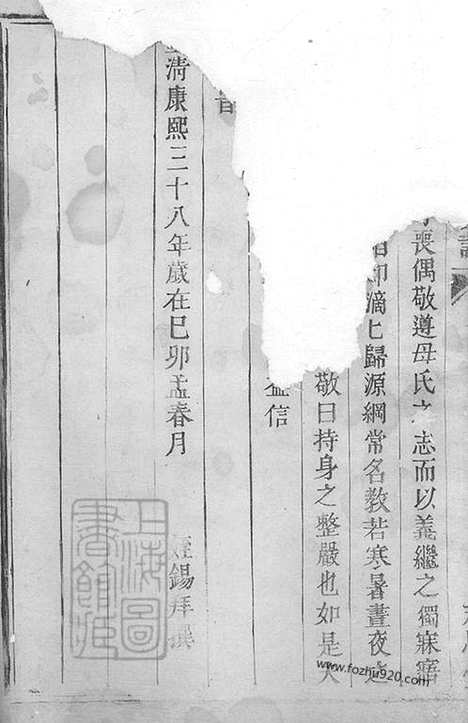 喪偶敬遵母氏之志而以義繼之獨寐寤
滴匕歸源綱常名教若寒暑晝夜迭
敬曰持身之整嚴也如是夫
益信
清康熙三十八年歲在巳卯孟春月
錫拜撰
上海圖書館藏
www.fozhu920.com